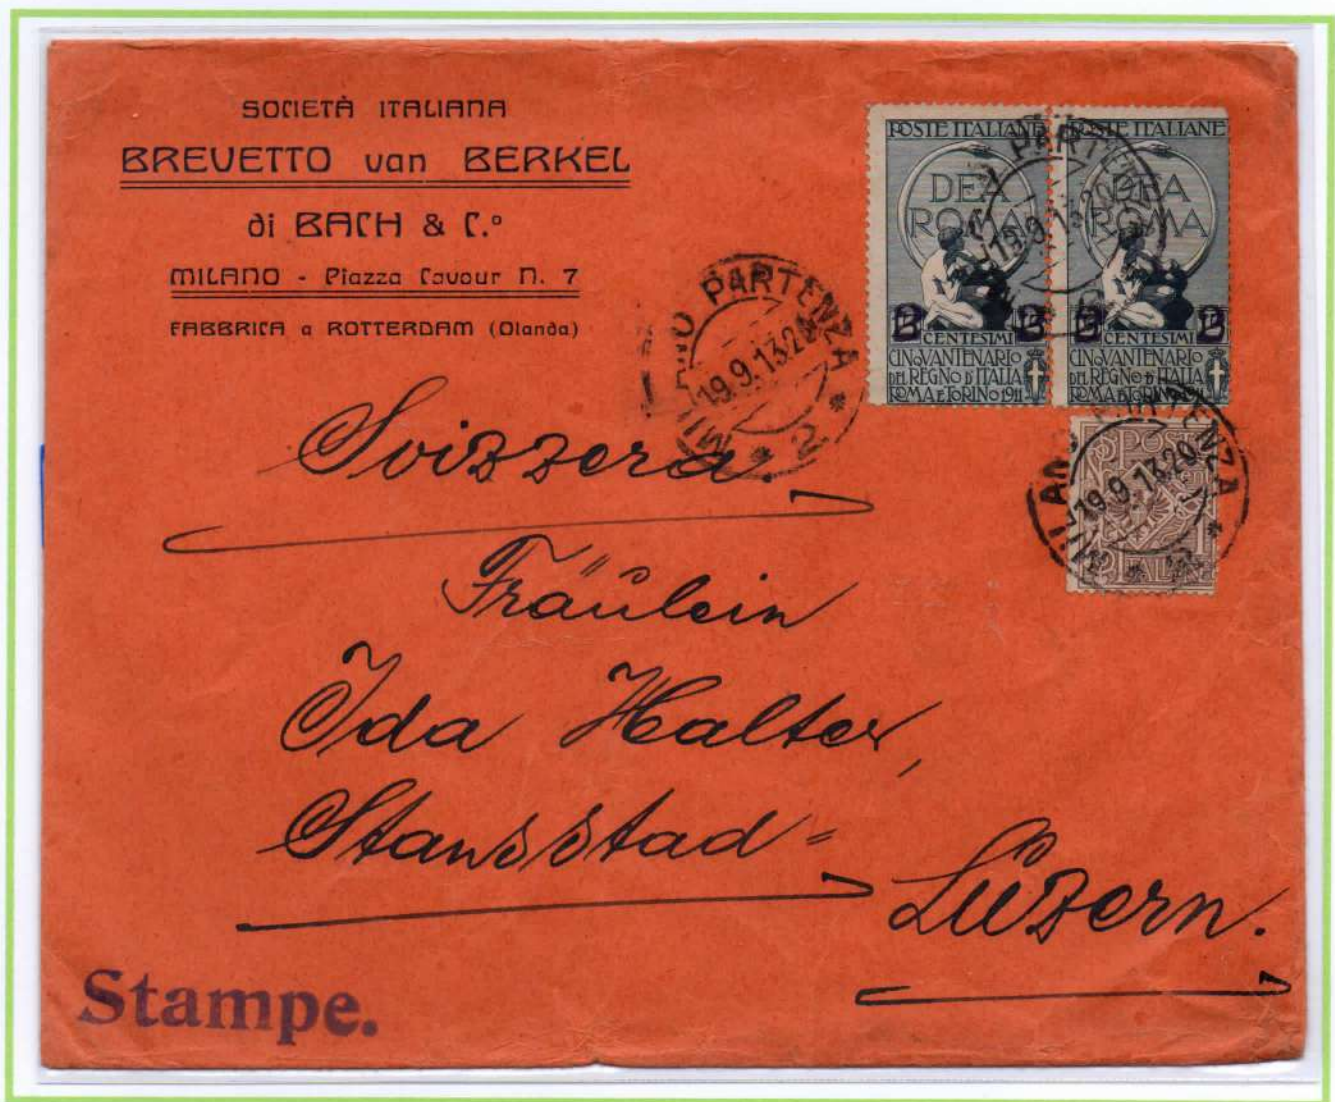 SOCIETÀ ITALIANA
BREVETTO van BERKEL
di BACH & C.º
MILANO - Piazza Cavour N. 7
FABBRICA a ROTTERDAM (Olanda)
POSTE ITALIANE
DEA
ROMA
2 2
CENTESIMI
CINQVANTENARIO
DEL REGNO D'ITALIA
ROMA E TORINO 1911
POSTE ITALIANE
DEA
ROMA
2 2
CENTESIMI
CINQVANTENARIO
DEL REGNO D'ITALIA
ROMA E TORINO 1911
PARTENZA
19.9.13.20
MILANO PARTENZA
19.9.13.20
* 2 *
POSTE
1 ITALIANE
MILANO PARTENZA
19.9.13.20
Svizzera.
Fräulein
Ida Halter,
Stansstad=
Luzern.
Stampe.